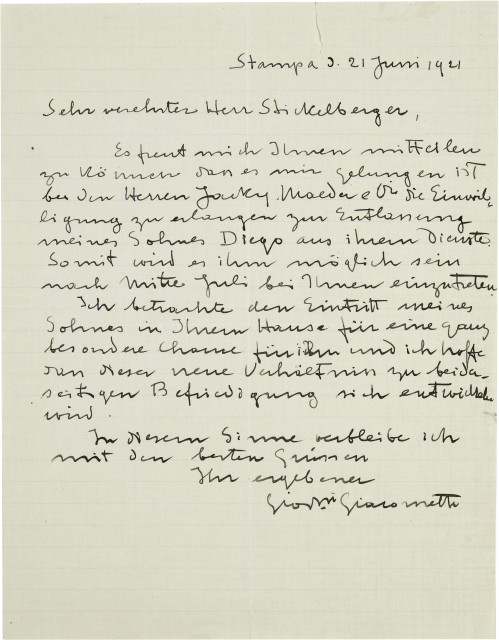 Stampa d. 21 Juni 1921
Sehr verehrter Herr Stickelberger,
Es freut mich Ihnen mitteilen
zu können dass es mir gelungen ist
bei den Herren Jacky, Maeder & Cie die Einwil-
ligung zu erlangen zur Entlassung
meines Sohnes Diego aus ihrem Dienste.
Somit wird es ihm möglich sein
nach Mitte Juli bei Ihnen einzutreten.
Ich betrachte den Eintritt meines
Sohnes in Ihrem Hause für eine ganz
besondere Chance für ihn und ich hoffe
dass dieser neue Verhältniss zu beider-
seitigen Befriedigung sich entwickeln
wird.
In diesem Sinne verbleibe ich
mit den besten Grüssen
Ihr ergebener
Giovni Giacometti